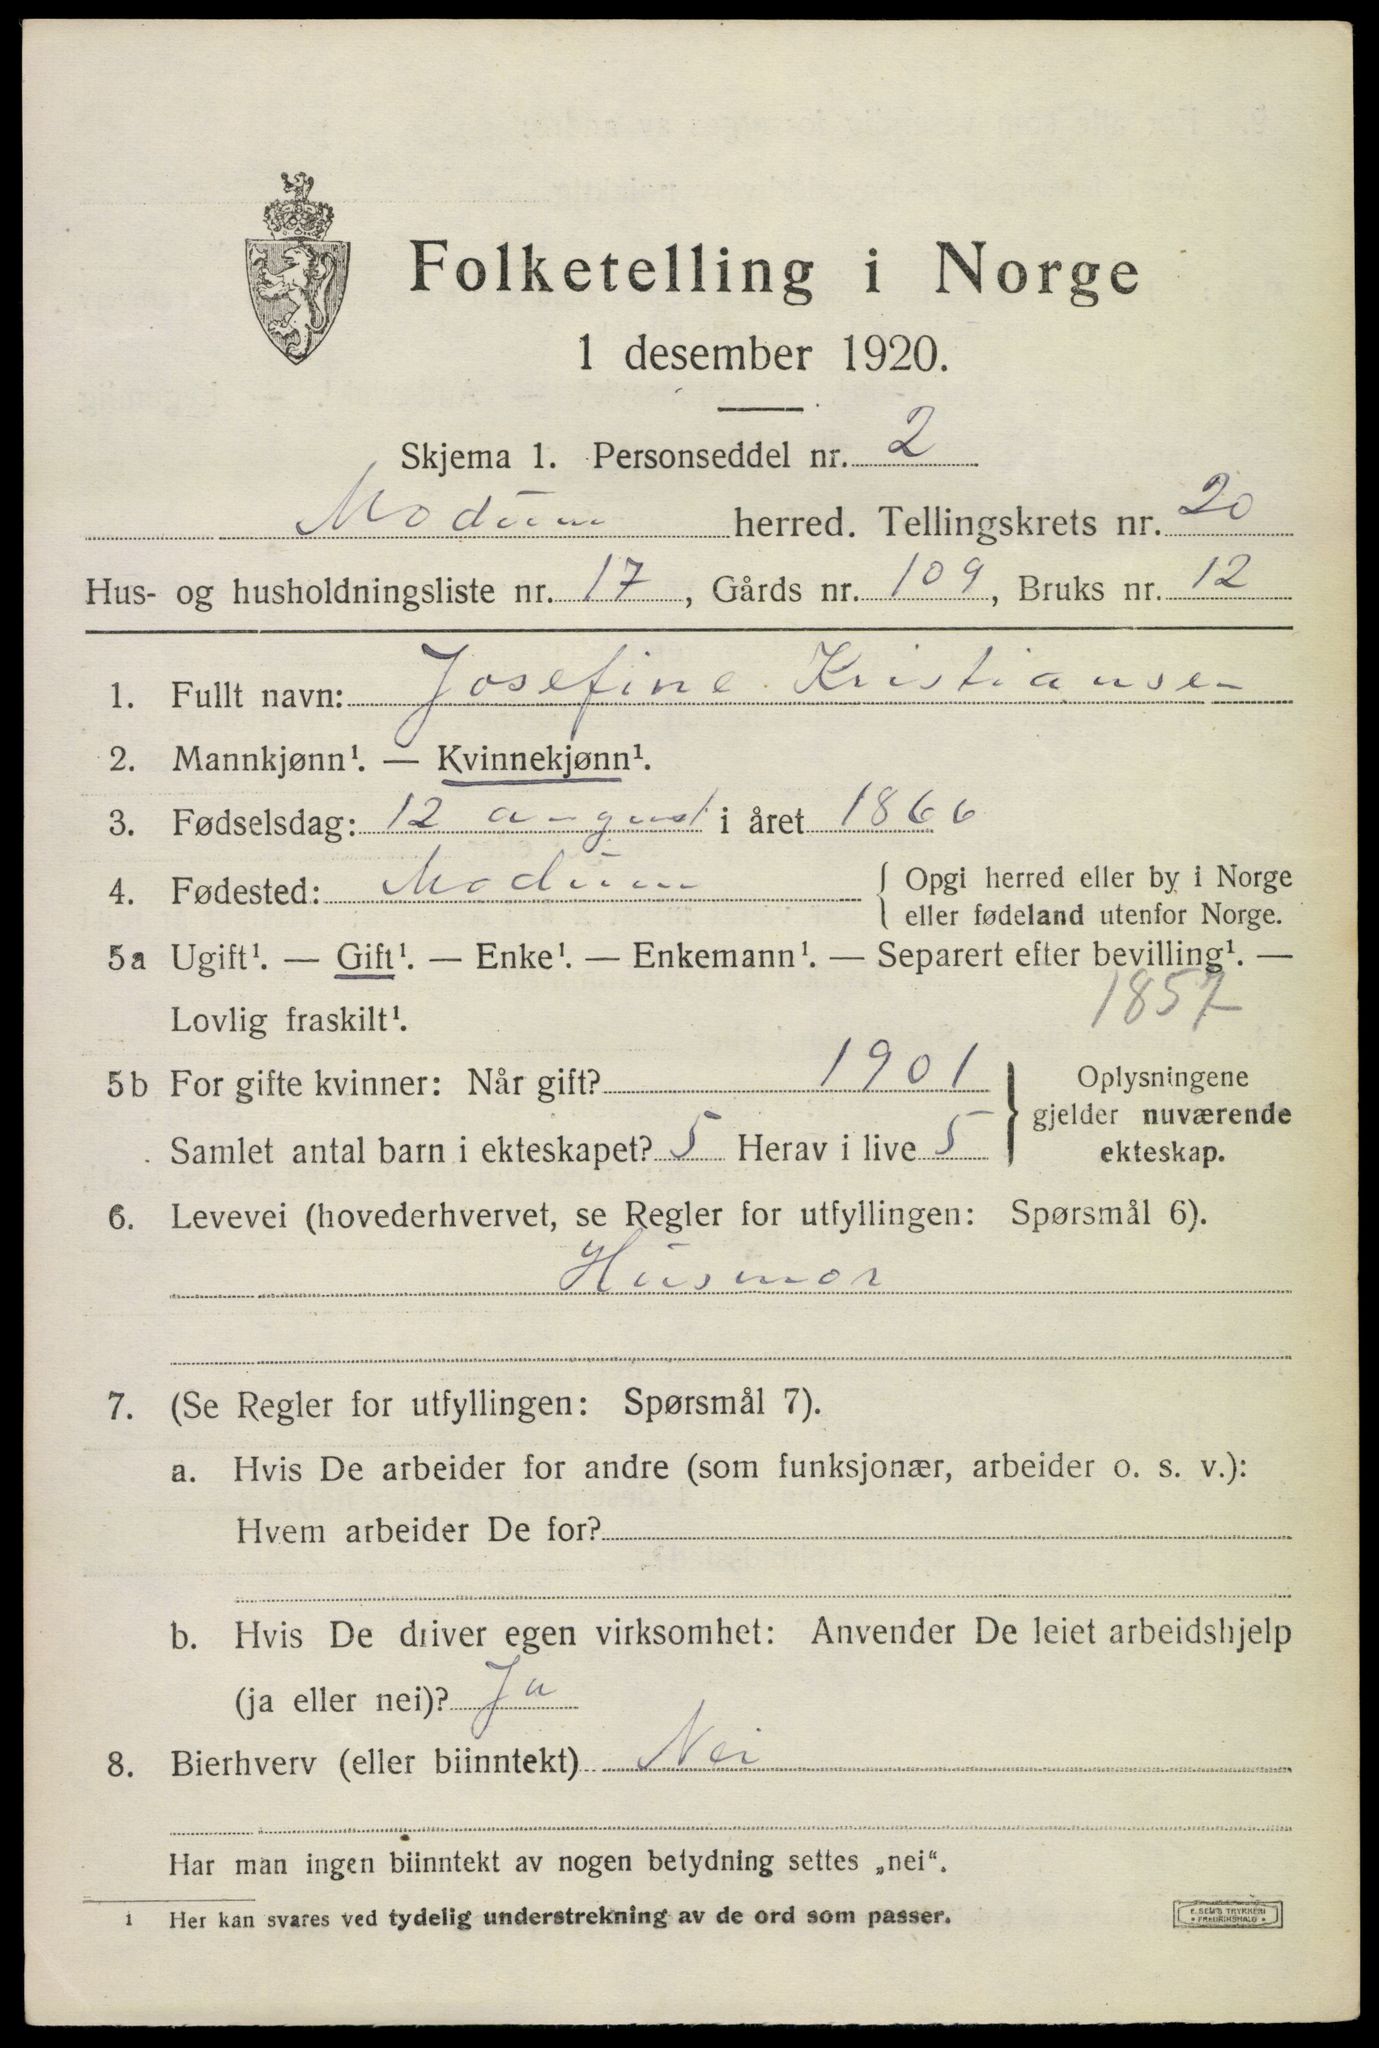 Folketelling i Norge
1 desember 1920.
Skjema 1. Personseddel nr. 2
Modum herred. Tellingskrets nr. 20
Hus- og husholdningsliste nr. 17, Gårds nr. 109, Bruks nr. 12
1. Fullt navn: Josefine Kristiansen
2. Mannkjønn¹. — Kvinnekjønn¹.
3. Fødselsdag: 12 august i året 1866
4. Fødested: Modum { Opgi herred eller by i Norge
eller fødeland utenfor Norge.
5a Ugift¹. — Gift¹. — Enke¹. — Enkemann¹. — Separert efter bevilling¹. —
Lovlig fraskilt¹. 1857
5b For gifte kvinner: Når gift? 1901
Samlet antal barn i ekteskapet? 5 Herav i live 5
} Oplysningene
gjelder nuværende
ekteskap.
6. Levevei (hovederhvervet, se Regler for utfyllingen: Spørsmål 6).
Husmor
7. (Se Regler for utfyllingen: Spørsmål 7).
a. Hvis De arbeider for andre (som funksjonær, arbeider o. s. v.):
Hvem arbeider De for?
b. Hvis De driver egen virksomhet: Anvender De leiet arbeidshjelp
(ja eller nei)? Ja
8. Bierhverv (eller biinntekt) Nei
Har man ingen biinntekt av nogen betydning settes „nei“.
1 Her kan svares ved tydelig understrekning av de ord som passer.
E. SEM'S TRYKKERI
* FREDRIKSHALD *